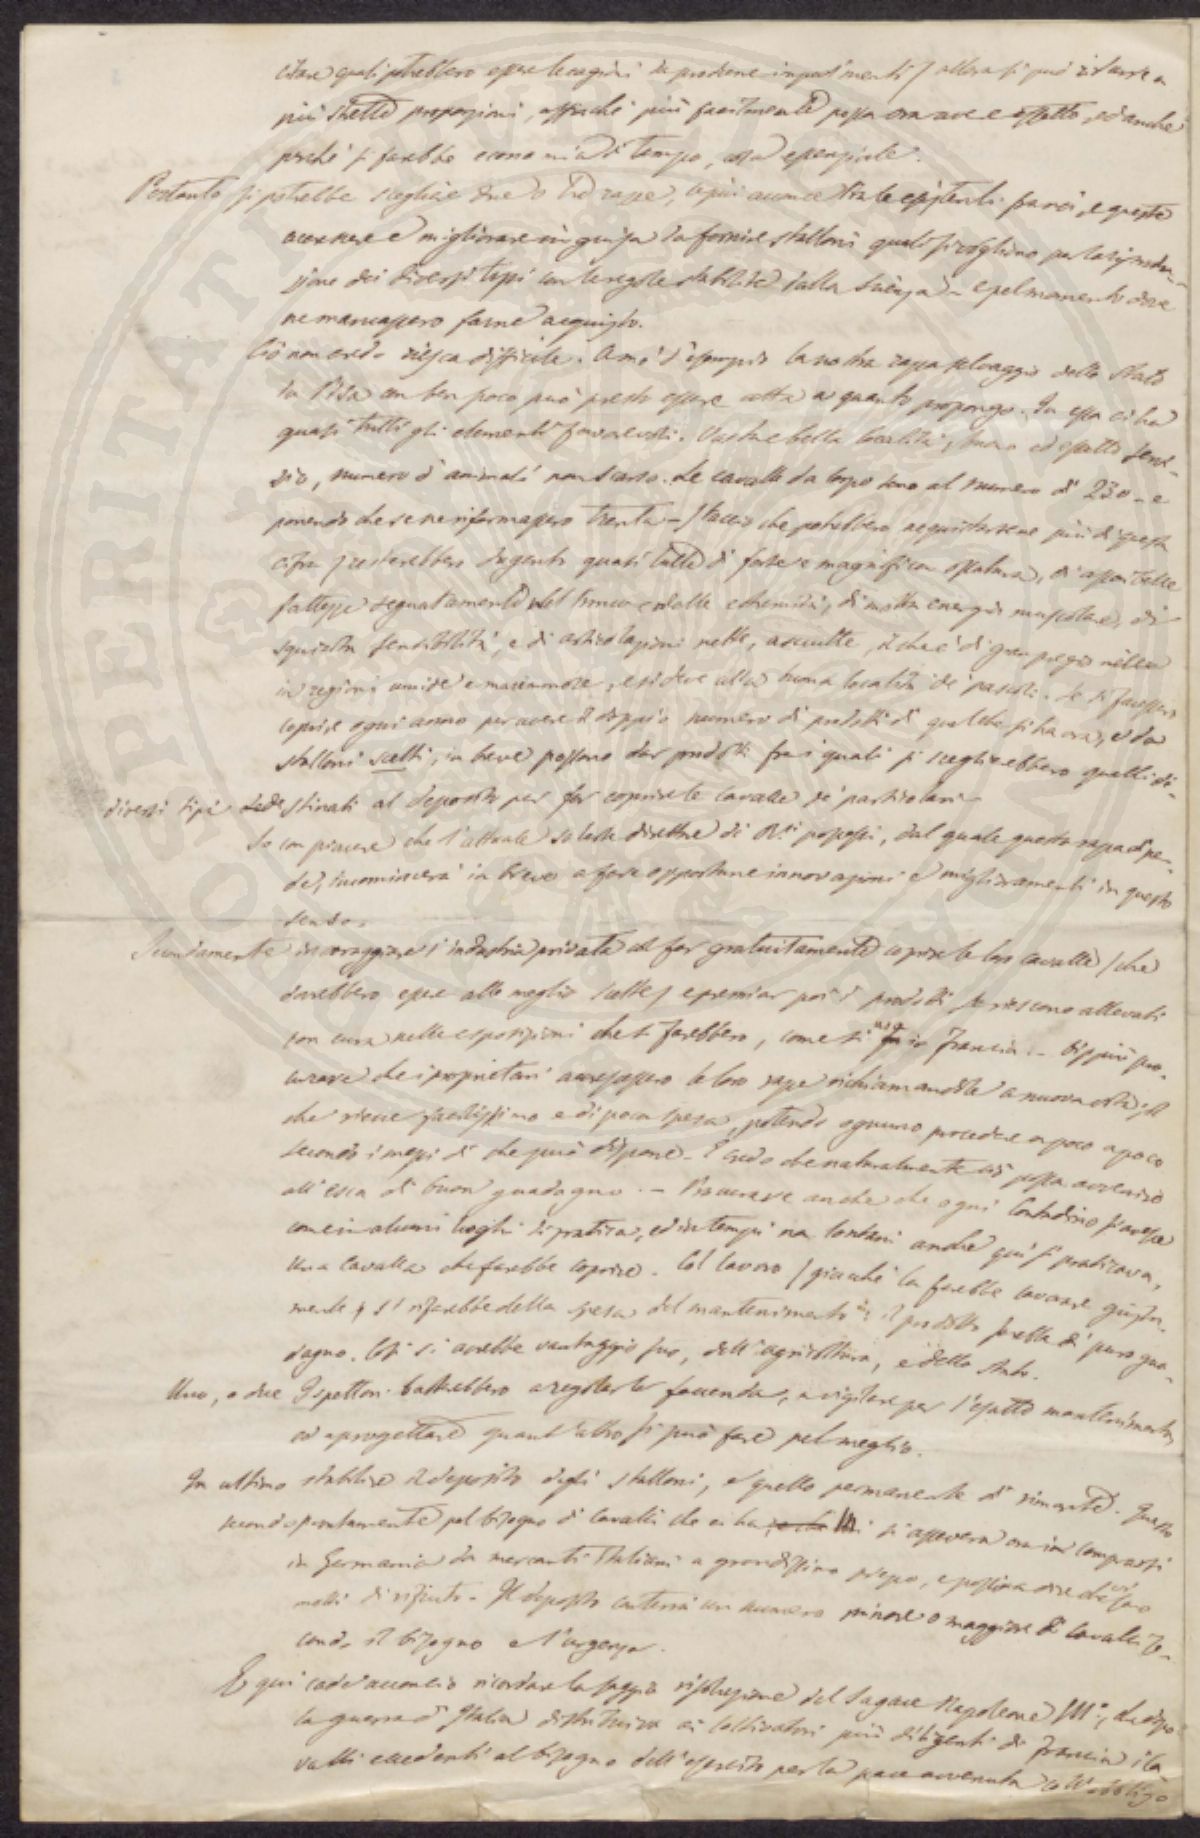 citare quali potrebbero essere le cagioni da produrne impedimenti / allora si può ridurre a
più strette proporzioni, affinché più facilmente possa ora avere effetto, ed anche
perché si farebbe economia di tempo, cosa essenziale.
Pertanto si potrebbe scegliere due o tre razze, le più acconce tra le esistenti fra noi, e queste
accrescere e migliorare in guisa da fornire stalloni quali si vogliono per la riprodu-
zione dei diversi tipi con le regole stabilite dalla Scienza - e pel momento dove
ne mancassero farne acquisto.
Ciò non credo riesca difficile. A mo' d'esempio la nostra razza selvaggia dello Stato
in Pisa con ben poco può presto essere atta a quanto propongo. In essa ci ha
quasi tutti gli elementi favorevoli. Vasta e bella località, buono ed esatto servi-
zio, numero d'animali non scarso. Le cavalle da corpo sono al numero di 230 - e
ponendo che se ne riformassero trenta - / taccio che potrebbero acquistarsene più di questa
cifra / resterebbero dugento quasi tutte di forte e magnifica ossatura, di assai belle
fattezze segnatamente nel tronco e nelle estremità, di molta energia muscolare, di
squisita sensibilità, e di articolazioni nette, asciutte, il che è di gran pregio
in regioni umide e maremmane, e si deve alla buona località de' pascoli. Se si facessero
coprire ogni anno per avere il doppio numero di prodotti di quel che si ha ora, e da
stalloni scelti, in breve possono dar prodotti fra i quali si sceglierebbero quelli di
diversi tipi destinati al deposito per far coprire le cavalle de' particolari.
So con piacere che l'attuale solerte direttore di R.li possessi, dal quale questa razza dipen-
de, incomincerà in breve a fare opportune innovazioni e miglioramenti in questo
senso.
Secondamente incoraggiare l'industria privata col far gratuitamente coprire le loro cavalle / che
dovrebbero essere alla meglio scelte / e premiar poi i prodotti se riescono allevati
con cura nelle esposizioni che si farebbero, come si usa in Francia. - Dippiù pro-
curare che i proprietari accrescessero le loro razze richiamandole a nuova vita, il
che riesce facilissimo e di poca spesa, potendo ognuno procedere a poco a poco
secondo i mezzi di che può disporre - E credo che naturalmente ciò possa avvenire
all'esca di buon guadagno. - Procurare anche che ogni Contadino s'avesse
come in alcuni luoghi si pratica, ed in tempi non lontani anche qui si praticava,
una cavalla che farebbe coprire. Col lavoro / giacché la farebbe lavorare giusta-
mente / si rifarebbe della spesa del mantenimento e il prodotto sarebbe di puro gua-
dagno. Così si avrebbe vantaggio suo, dell'agricoltura, e dello Stato.
Uno, o due Ispettori basterebbero a regolar la faccenda, a vigilare per l'esatto mantenimento,
ed a progettare quant'altro si può fare pel meglio.
In ultimo stabilire il deposito degli stalloni, e quello permanente di rimonta. Questo
secondo puntamente pel bisogno di cavalli che ci ha, si assevera ora in comprarsi
in Germania da mercanti Italiani a grandissimo prezzo, e possiam dire che vi sono
molti di rifiuto. Il deposito conterrà un numero minore o maggiore di cavalli se-
condo il bisogno e l'urgenza.
E qui cade acconcio ricordare la saggia risoluzione del Sagace Napoleone III°, che dopo
la guerra d'Italia distribuiva ai coltivatori più diligenti di Francia i ca-
valli eccedenti al bisogno dell'esercito per la pace avvenuta coll'obbligo